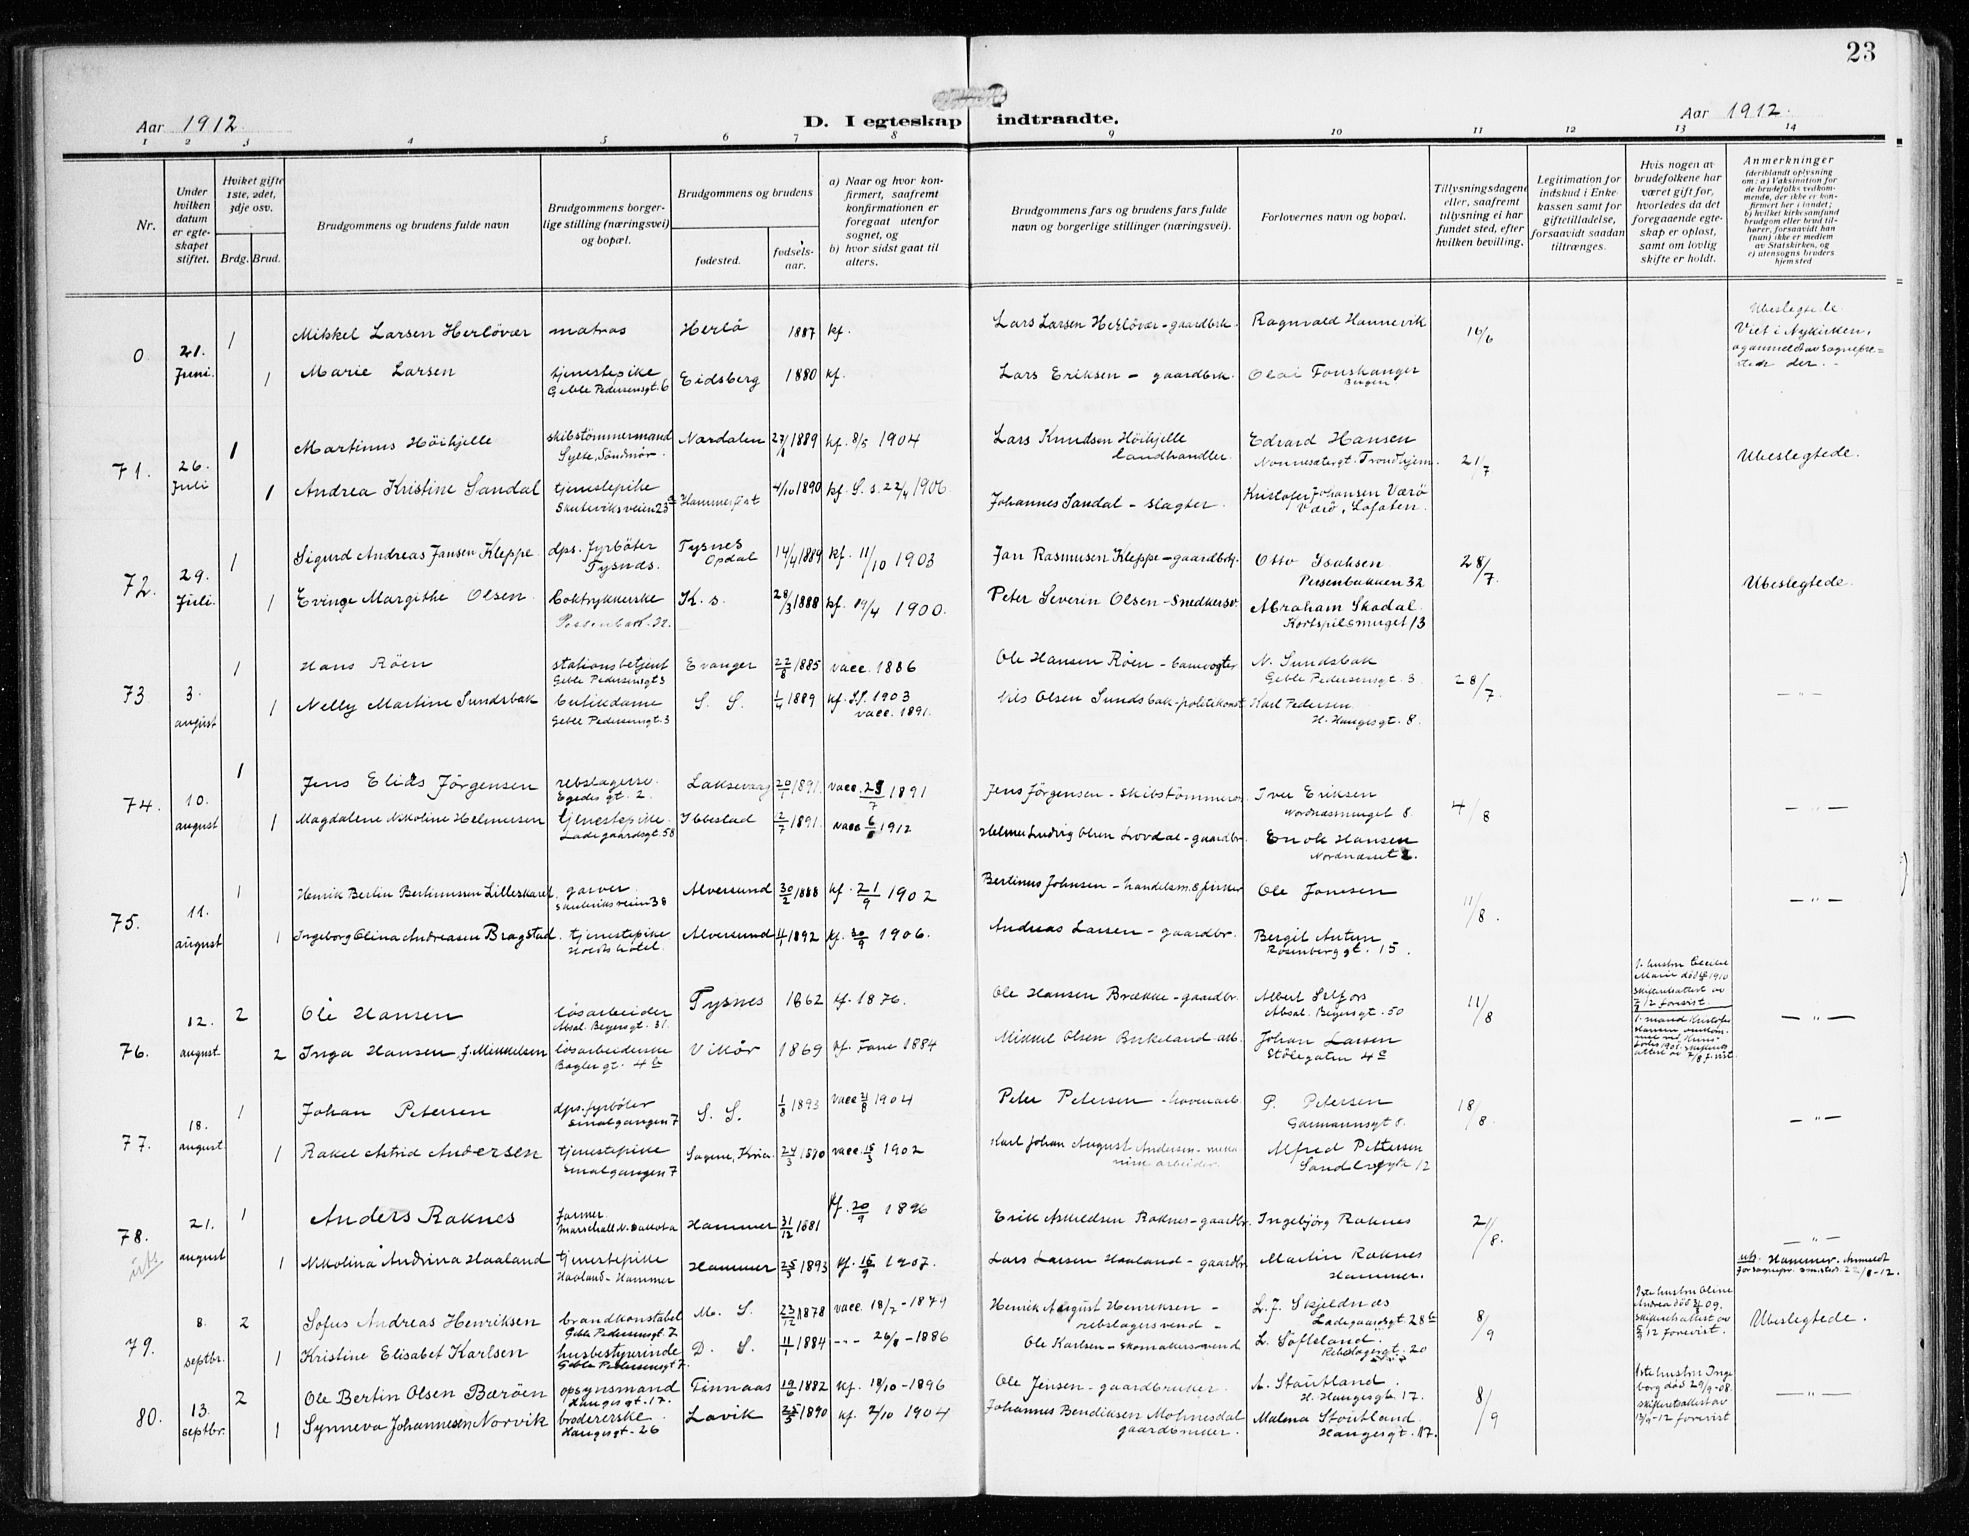 23
Aar 1912. D. I egteskap indtraadte. Aar 1912.
1 2 3 4 5 6 7 8 9 10 11 12 13 14
Nr.
Under hvilken datum er egteskapet stiftet.
Hvilket gifte 1ste, 2det, 3dje osv.
Brdg. Brud.
Brudgommens og brudens fulde navn
Brudgommens borgerlige stilling (næringsvei) og bopæl.
Brudgommens og brudens
fødested.
fødselsaar.
a) Naar og hvor konfirmert, saafremt konfirmationen er foregaat utenfor sognet, og
b) hvor sidst gaat til alters.
Brudgommens fars og brudens fars fulde navn og borgerlige stillinger (næringsvei).
Forlovernes navn og bopæl.
Tillysningsdagene eller, saafremt tillysning ei har fundet sted, efter hvilken bevilling.
Legitimation for indskud i Enkekassen samt for giftetilladelse, forsaavidt saadan tiltrænges.
Hvis nogen av brudefolkene har været gift før, hvorledes da det foregaaende egteskap er opløst, samt om lovlig skifte er holdt.
Anmerkninger (deriblandt oplysning om: a) Vaksination for de brudefolks vedkommende, der ikke er konfirmert her i landet; b) hvilket kirkesamfund brudgom eller brud tilhører, forsaavidt han (hun) ikke er medlem av Statskirken, og c) utensogns bruders hjemsted
0 21. Juni. 1 Mikkel Larsen Herlövær matros Herlö 1887 kf. Lars Larsen Herlövær - gaardbrk. Ragnvald Hannevik 16/6 Ubeslegtede
Viet i Nykirken,
1 Marie Larsen tjenestepike Eidsberg 1880 kf. Lars Eriksen - gaardbrk. Olai Fonskanger
Geble Pedersensgt 6 Bergen
71. 26. Juli 1 Martinus Höihjelle skibstömmermand Nordalen 1889 kf. 8/5 1904 Lars Knudsen Höihjelle Edvard Hansen 21/7 Ubeslegtede.
Sylte, Söndmör. Landhandler. Nonnesætergt. Trondhjem.
1 Andrea Kristine Sandal tjenestepike Hammerfest 4/10 1890 kf. S. s. 22/4 1906 Johannes Sandal - slagter. Kristofer Johansen Værö
Skuteviksveien 23 Værö, Lofoten.
72. 29. Juli. 1 Sigurd Andreas Jansen Kleppe. dps. fyrböter Tysnes Opdal 14/4 1889 kf. 11/10 1903 Jan Rasmusen Kleppe - gaardbrk. Otto Isaksen 28/7. Ubeslegtede.
Tysnes. Persenbakken 32
1 Evinge Margithe Olsen boktrykkerske K. s. 28/3 1888 kf. 19/4 1900. Peter Severin Olsen - Snedkersv. Abraham Skodal.
Kortspilsmuget 13
73 3. august 1 Hans Röen stationsbetjent Evanger 22/8 1885 vacc. 1886 Ole Hansen Röen - banevogter N. Sundsbak 28/7. - " -
Geble Pedersensgt 3 Geble Pedersensgt. 3
1 Nelly Martine Sundsbak butikdame S. S. 1/4 1889 kf. S.S. 1903 Nils Olsen Sundsbak - politikonst Karl Petersen
Geble Pedersensgt. 3 vacc. 1891. H. Haugesgt. 8.
74. 10. august 1 Jens Elias Jörgensen rebslagersv. Laksevaag 20/1 1891. vacc. 25/7 1891 Jens Jörgensen - skibstömmerm. Iver Eriksen 4/8 - " -
Egedes gt. 2. Nordnæsmuget 8.
1 Magdalene Nikoline Helmersen tjenestepike. Ibbestad 2/7 1891. vacc 6/8 1912 Helmer Ludvig Olsen Lovdal - gaardbr. Enole Hansen
Ladegaardsgt. 58 Nordnæsset 2.
75. 11. august 1 Henrik Bertin Bertinussen Lilleskaret. garver. Alversund 30/2 1888 kf. 21/9 1902 Bertinus Johnsen - handelsm. & fisker Ole Jonesen 11/8. - " -
Skuteviksveien 38
1 Ingeborg Olina Andreasen Bragstad. tjenestepike Alversund 4/1 1892 kf. 30/9 1906. Andreas Larsen - gaardbr. Bergit Antun
Holdts hotel. Rosenberggt. 15.
76. 12. august. 2 Ole Hansen lösarbeider Tysnes 1862 kf. 1876. Ole Hansen Brække - gaardbr. Albert Selfors 11/8 1. hustru Cecilie Marie död 1910 skifteattest av 7/9 12 forevist. - " -
Absal. Beyersgt. 31. Absal. Beyersgt. 50
2 Inga Hansen f. Mikkelsen lösarbeiderske Vikör 1869 kf. Fane 1884 Mikkel Olsen Birkeland - arb. Johan Larsen 1. mand Kristofer Hansen
Bagler gt. 4b Stölegaten 4c
77. 18. august. 1 Johan Petersen dps. fyrböter S. S. 1/8 1893 vacc 21/8 1904 Peter Petersen - havnearb. P. Petersen 18/8 - " -
Smalgangen 7 Garmannsgt 8.
1 Rakel Astrid Andersen tjenestepike Sagene, Kria. 24/3 1890 vacc. 15/3 1902 Karl Johan August Andersen - mekanisk arbeider. Alfred Pettersen
Smalgangen 7 Sandbrogt 12
78. 21. august 1 Anders Raknes farmer Hammer 31/12 1881 kf. 20/9 1896 Erik Askildsen Raknes - gaardbr. Ingebjörg Raknes 21/8. - " -
Marschall N. Dakota
1 Nikolina Andrina Haaland tjenestepike Hammer 25/3 1893 kf. 15/9 1907. Lars Larsen Haaland - gaardbr. Martin Raknes uts. Hammer. Anmeldt
Haaland - Hammer Hammer. for sognepr. smsteds. 22/8-12.
79. 8. septbr. 2 Sofus Andreas Henriksen brandkonstabel M. S. 23/12 1878 vacc. 18/7 - 1879 Henrik August Henriksen - L. J. Skjeldnæs 8/9 1ste hustru Oline Andrea död 09. skifteattest av 12 forevist. Ubeslegtede.
Geble Pedersensgt 7 rebslagersvend - Ladegaardsgt 28b
1 Kristine Elisabet Karlsen husbestyrerinde D. S. 11/1 1884 -"- 26/8 - 1886 Ole Karlsen - skomakersvend L. Söfteland.
Geble Pedersensgt 7. Rebslagergt. 20
80. 13. septbr. 2 Ole Bertin Olsen Bæröen opsynsmand Finnaas 19/6 1882 kf. 18/10 - 1896 Ole Jensen - gaardbruker. A. Stautland. 8/9 1ste hustru Ingeborg död 29/9-08. skifteattest av 13/9-12 forevist - " -
Haugesgt. 17. H. Haugesgt. 17.
1 Synneva Johannesen Norvik brodererske. Lavik 25/5 1890 kf. 2/10 1904 Johannes Bendiksen Molnesdal Malena Stautland.
Haugesgt - 26 gaardbruker. Haugesgt. 17.